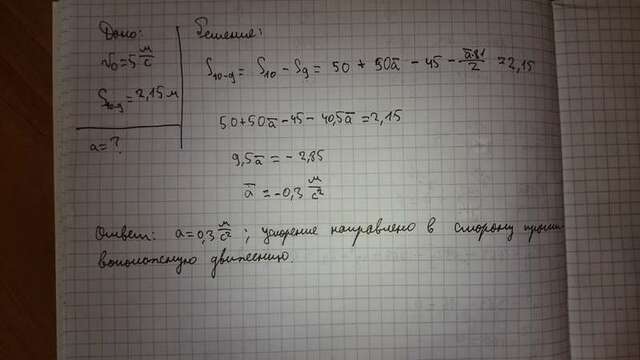 Дано:
v₀ = 5 м/с
S₁₀₋₉ = 2,15 м
a = ?
Решение:
S₁₀₋₉ = S₁₀ - S₉ = 50 + 50a̅ - 45 - a̅·81/2 = 2,15
50 + 50a̅ - 45 - 40,5a̅ = 2,15
9,5a̅ = - 2,85
a̅ = -0,3 м/с²
Ответ: a = 0,3 м/с² ; ускорение направлено в сторону проти
воположную движению.